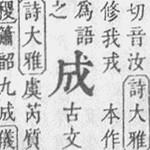 切音汝詩大雅
修我戎 本作
為語
之
成 古文
詩大雅虞芮質
稷簫韶九成儀